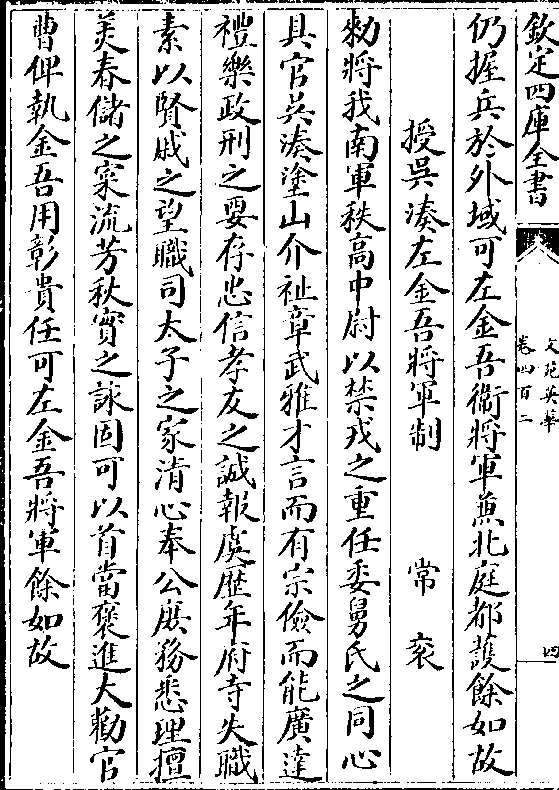 欽定四庫全書
文苑英華
卷四百二
四
仍握兵於外域可左金吾衞將軍兼北庭都護餘如故
授吳湊左金吾將軍制 常衮
勑將我南軍秩高中尉以禁戎之重任委舅氏之同心
具官吳湊塗山介祉章武雅才言而有宗儉而能廣達
禮樂政刑之要存忠信孝友之誠報虔歴年府寺失職
素以賢戚之望職司太子之家清心奉公庶務悉理擅
美春儲之寀流芳秋實之詠固可以首當褒進大勸官
曹俾執金吾用彰貴任可左金吾將軍餘如故